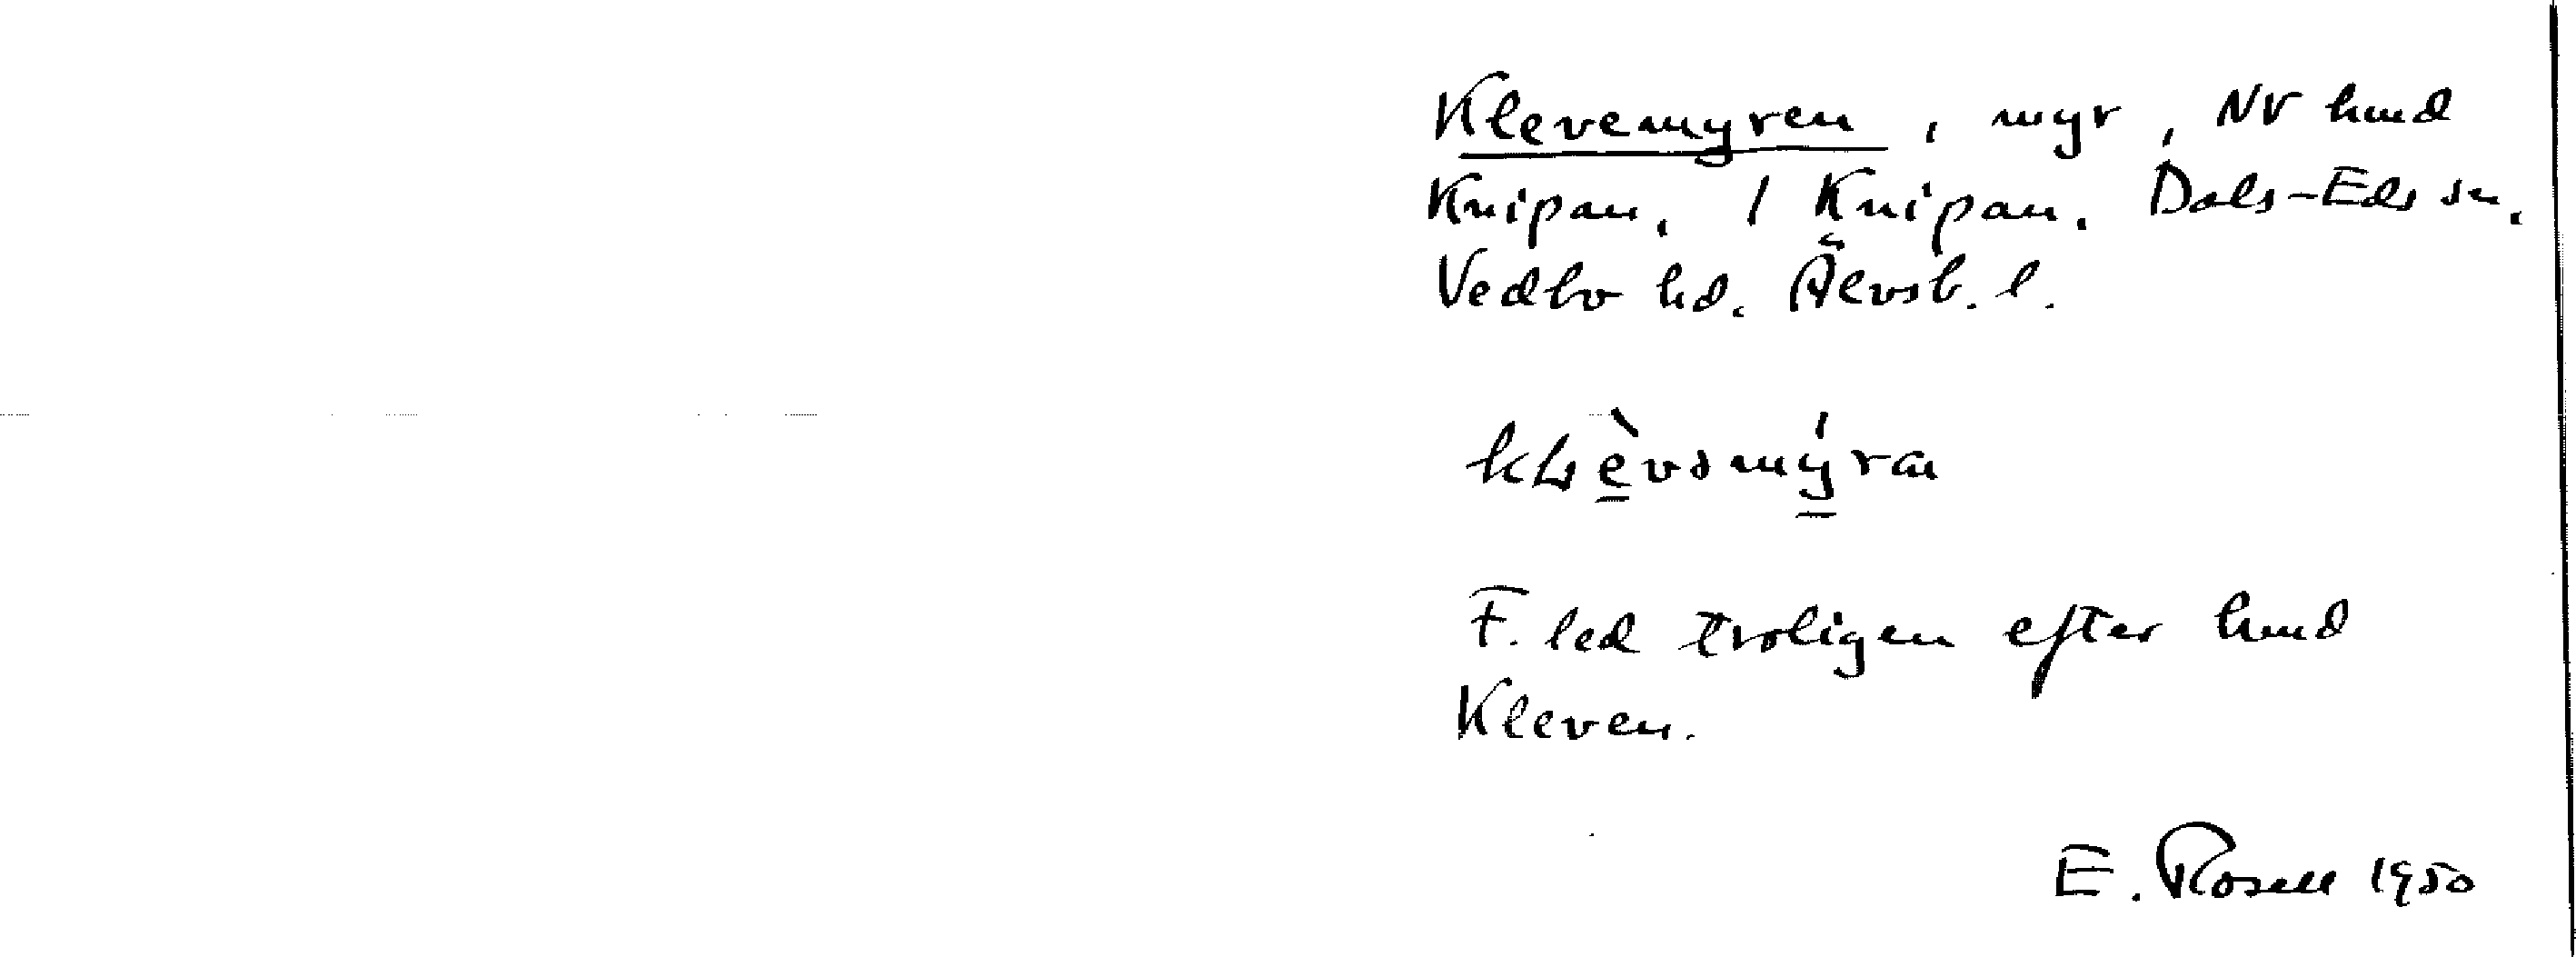 Klevemyren, myr, NV hmd
Knipan, 1 Knipan. Dals-Eds sn.
Vedbo hd. Älvsb. l.
F. led troligen efter hmd
Kleven.
E. Rosell 1950